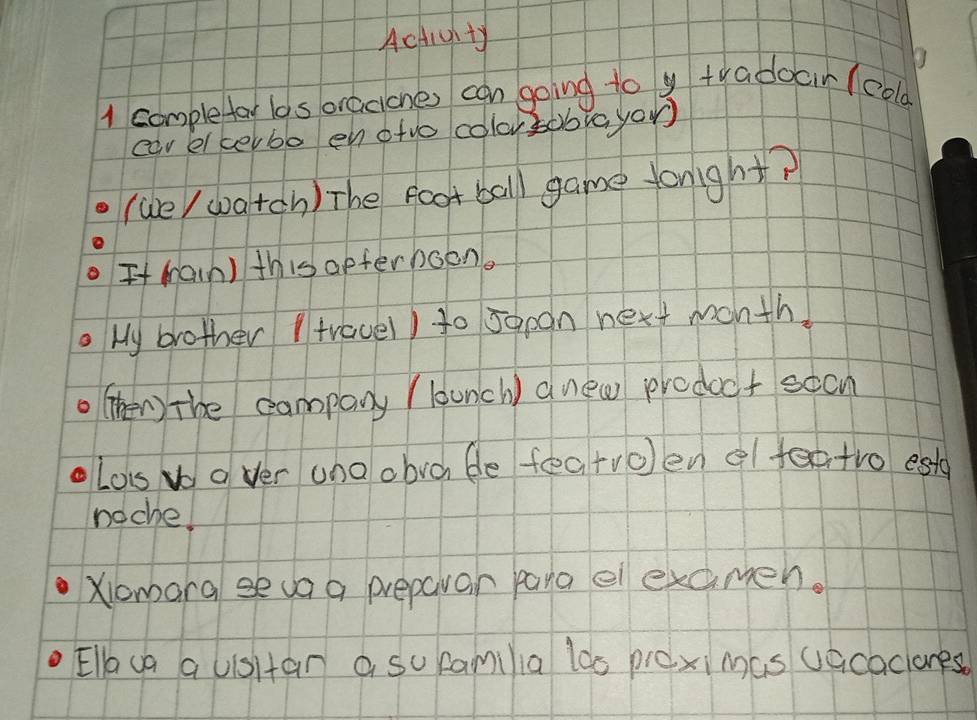 Activity
1 completar las oraciones con going to y traducir (colo
car el verbo en otro color sobrayar)
• (we/watch) The foot ball game tonight?
•
• It (rain) this afternoon.
• My brother (travel) to Japan next month.
• (Then) The company (lounch) a new product soon
• Lois va a ver una obra (de teatro) en el teatro esta
noche.
• Xiomara se va a preparar para el examen.
• Ella va a visitar a su familia las proximas vacaciones.